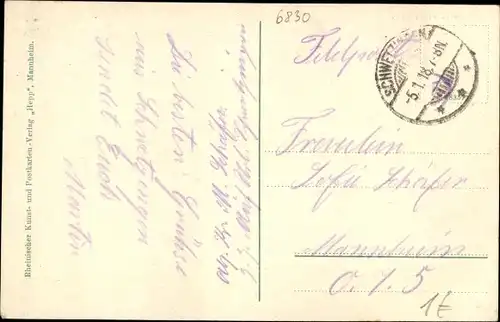 6830
Feldpost
SCHWETZINGEN
-5.1.18.7-8N.
Fräulein
Sofie Schäfer
Mannheim
O. 7. 5
1€
Die besten Grüsse
aus Schwetzingen
sendet Euch
Martin
Schäfer
Rheinischer Kunst- und Postkarten-Verlag „Repp", Mannheim.